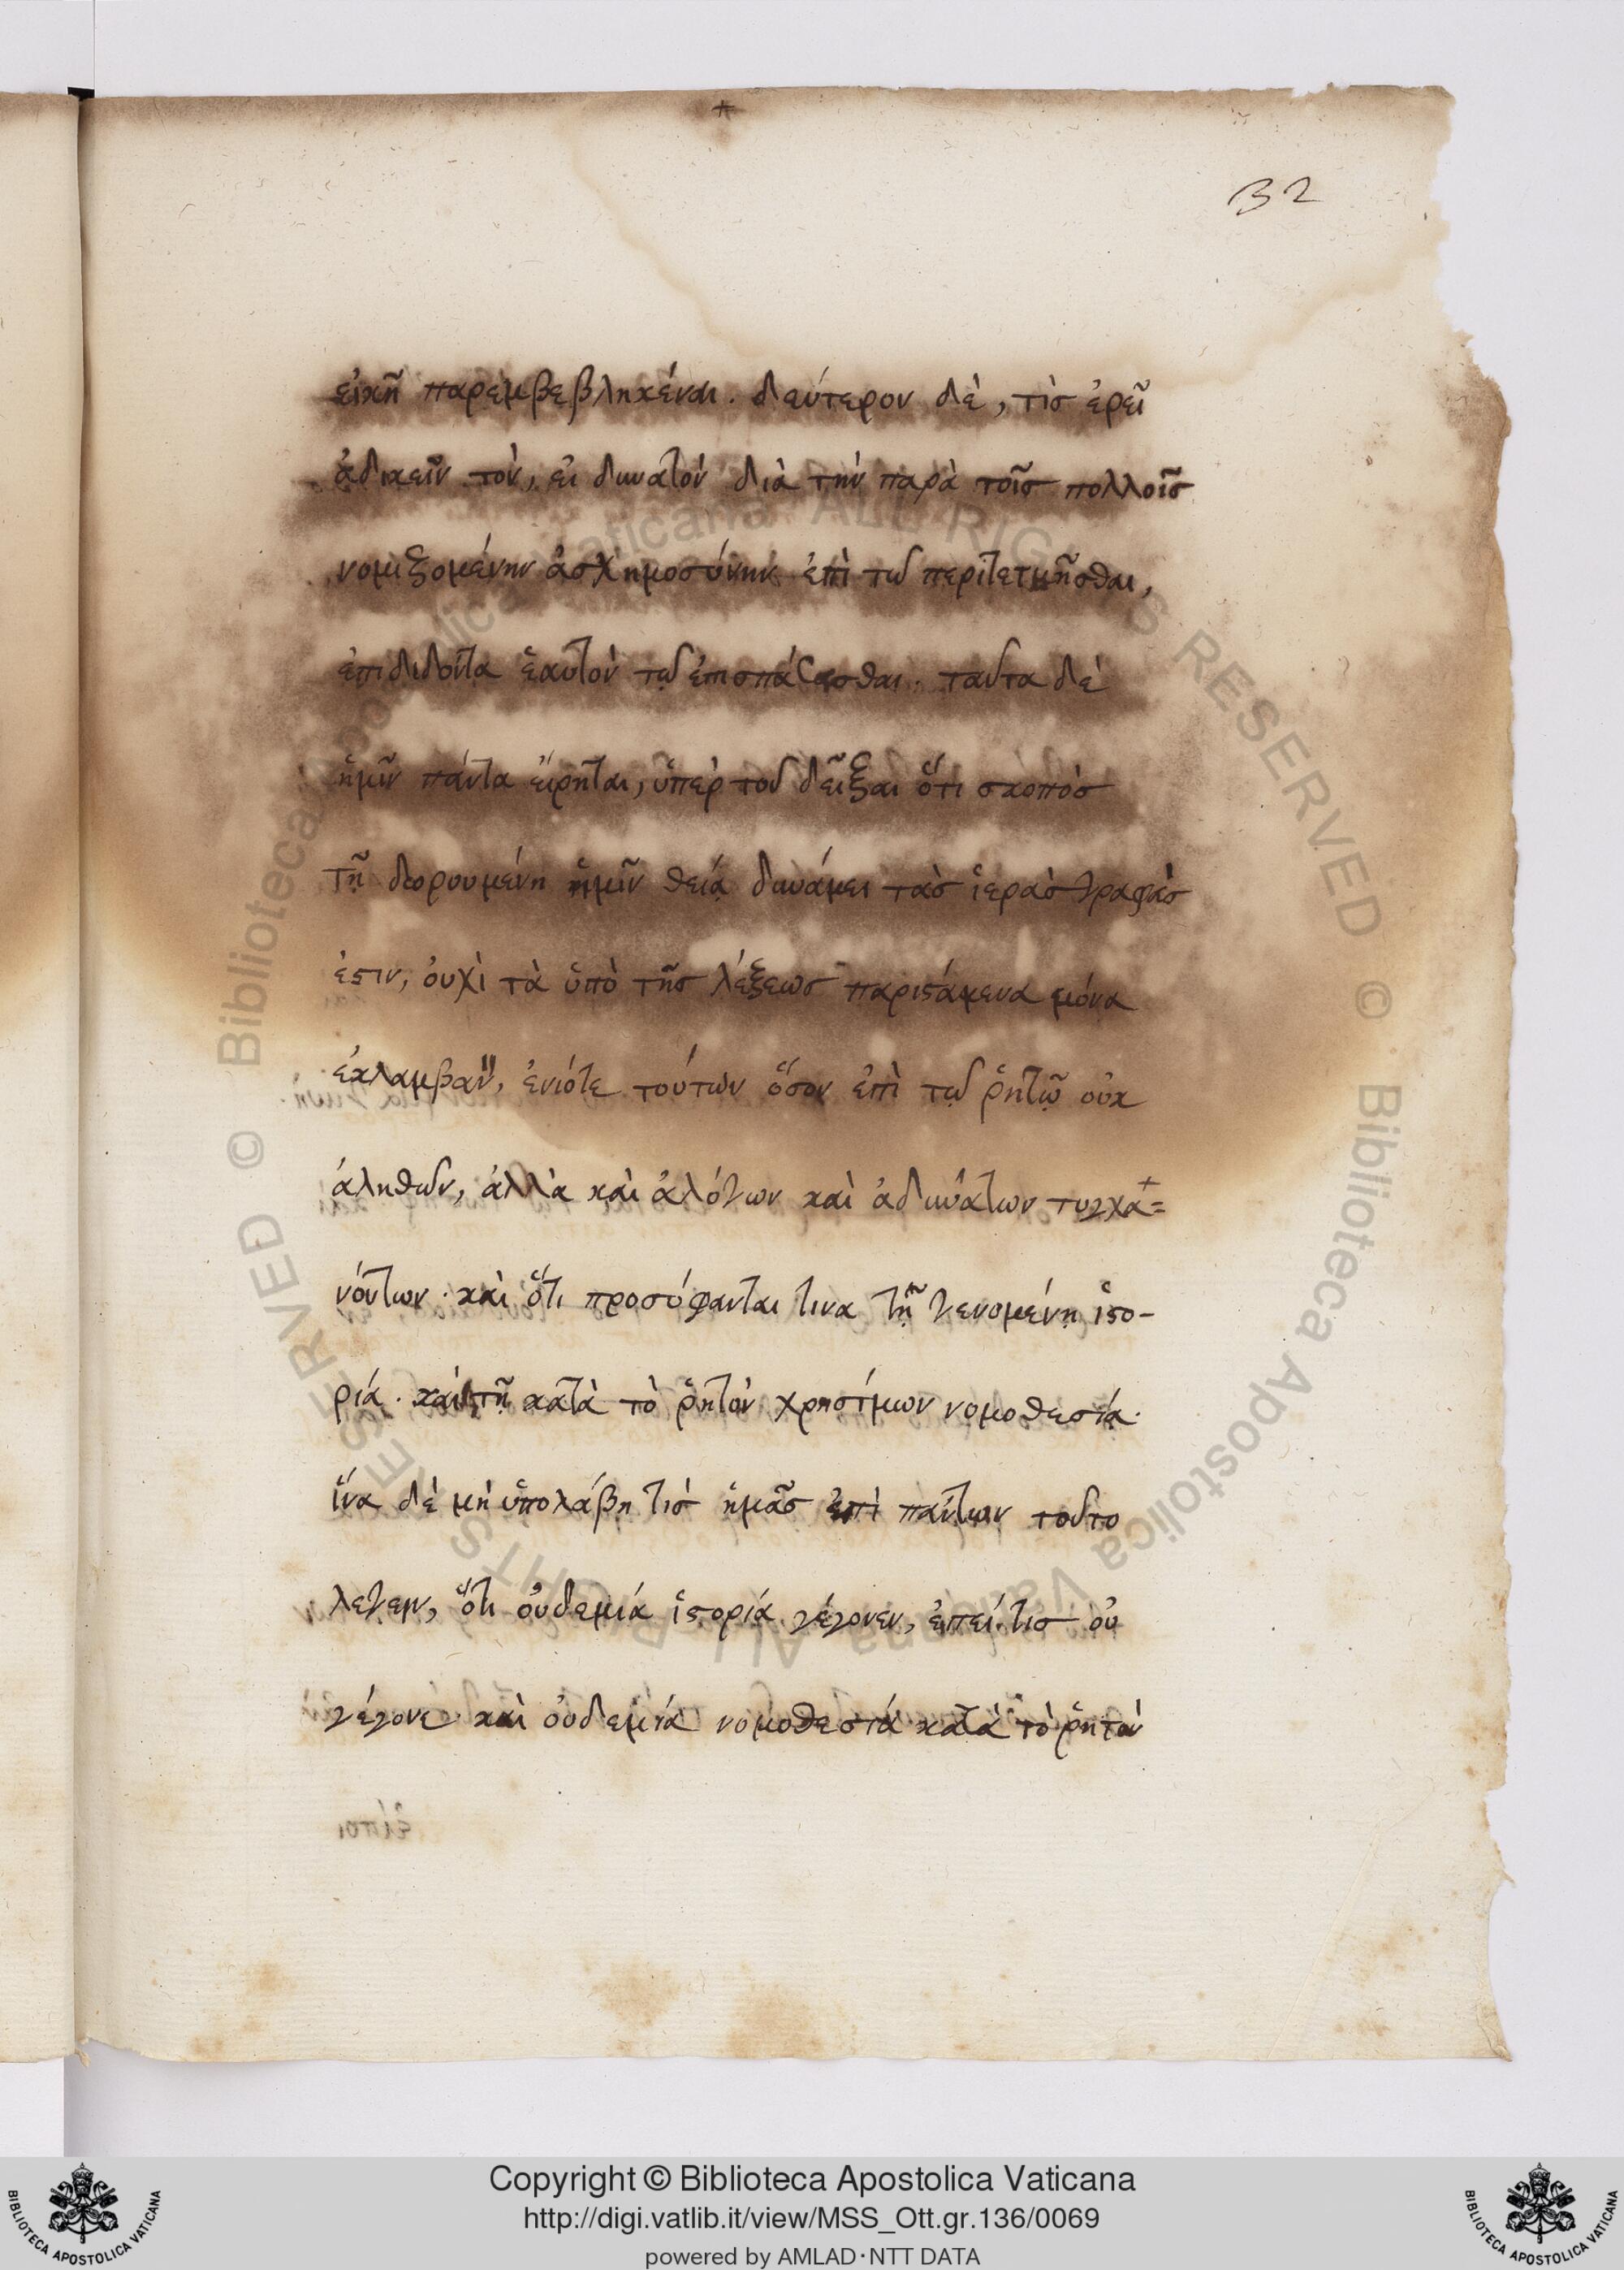 32
εἰκῆ παρεμβεβληκέναι. δεύτερον δὲ, τὶσ ἐρεῖ
ἀδικεῖν τὸν, εἰ δυνατὸν διὰ τὴν παρὰ τοῖσ πολλοῖσ
νομιζομένην ἀσχημοσύνην ἐπὶ τῶ περιτετμῆσθαι,
ἐπιδιδόντα ἑαυτὸν τῷ ἐπισπάσασθαι. ταῦτα δὲ
ἡμῖν πάντα εἴρηται, ὑπὲρ τοῦ δεῖξαι ὅτι σκοπὸσ
τῇ δωρουμένη ἡμῖν θείᾳ δυνάμει τὰσ ἱερὰσ γραφὰσ
ἐστιν, ὀυχὶ τὰ ὑπὸ τῆσ λέξεωσ παριστάμενα μόνα
ἐκλαμβάν, ἐνίοτε τούτων ὅσον ἐπὶ τῷ ῥητῷ οὐκ
ἀληθῶν, ἀλλὰ καὶ ἀλόγων καὶ ἀδυνάτων τυγχα=
νόντων. καὶ ὅτι προσύφανται τινα τῇ γενομένῃ ἱστο-
ρίᾳ. καὶ τῇ κατὰ τὸ ῥητὸν χρησίμων νομοθεσίᾳ.
ἵνα δὲ μὴ ὑπολάβη τισ ἡμᾶσ ἐπὶ πάντων τοῦτο
λέγειν, ὅτι οὐδεμία ἱστορία γέγονεν, ἐπεί τισ οὐ
γέγονε. καὶ οὐδεμία νομοθεσία κατὰ τὸ ῥητὸν
Copyright © Biblioteca Apostolica Vaticana
http://digi.vatlib.it/view/MSS_Ott.gr.136/0069
powered by AMLAD·NTT DATA